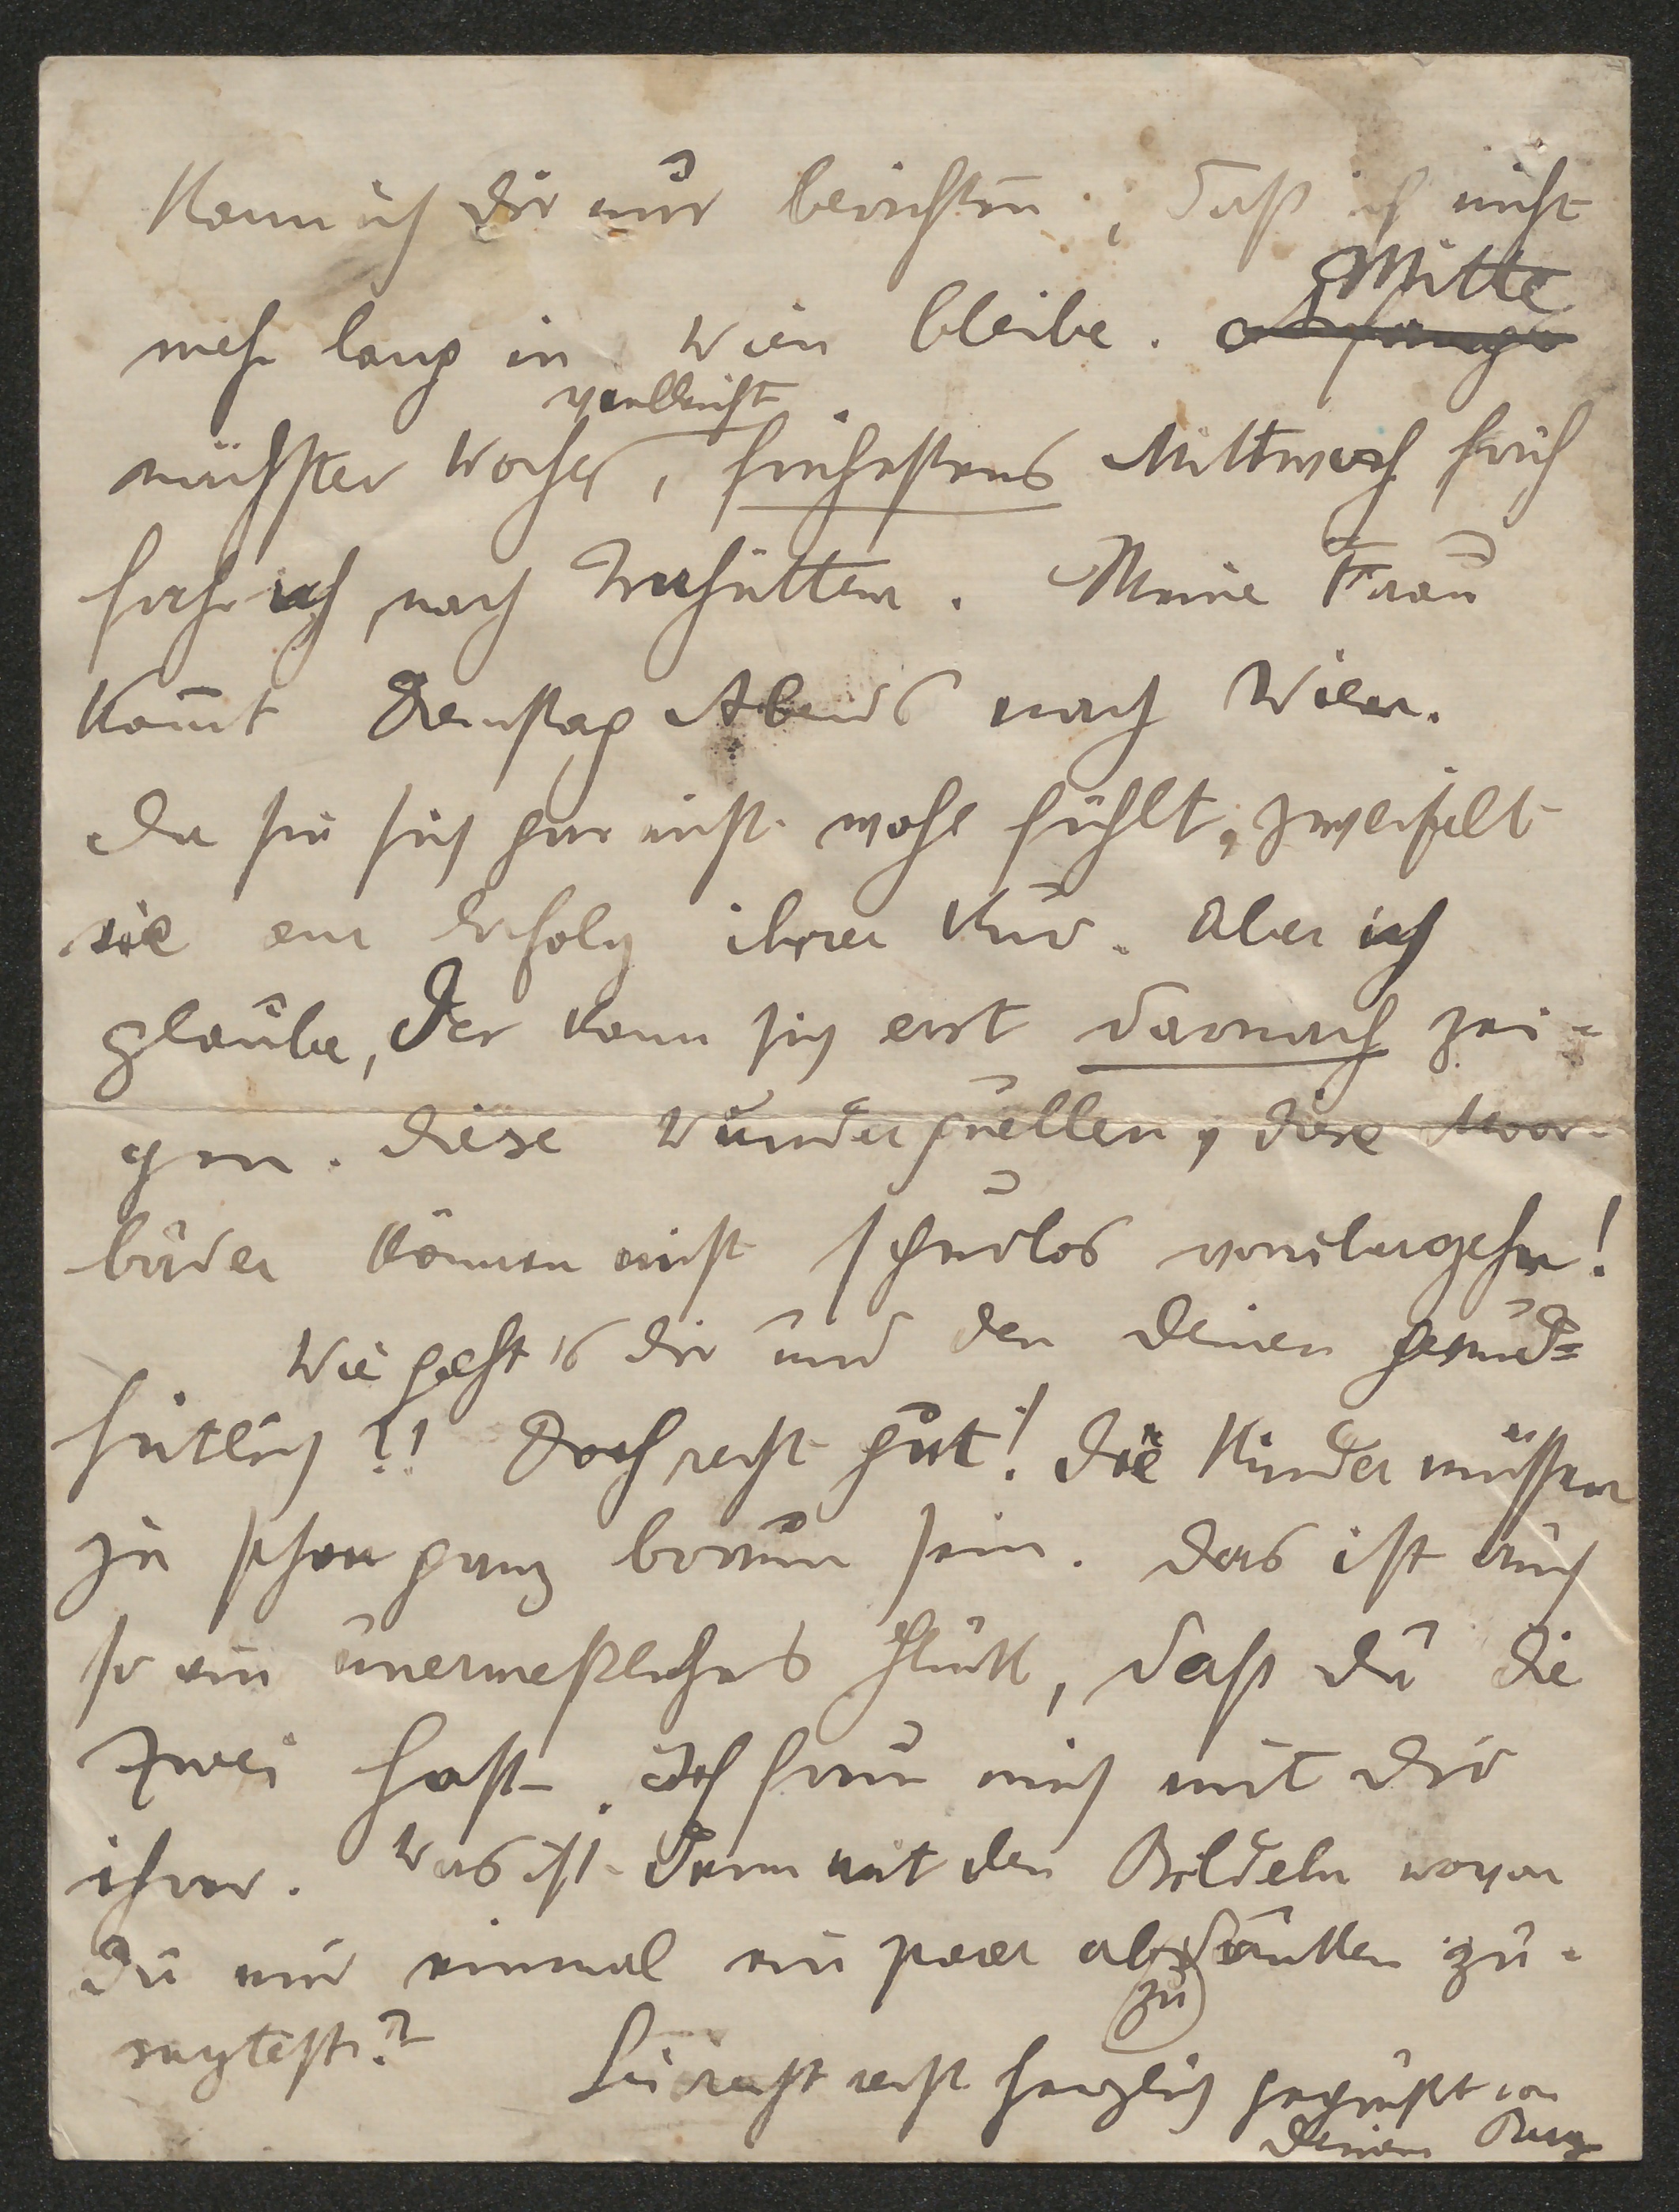 Kann ich dir nur berichten, daß ich nicht
mehr lang in Wien bleibe. Anfangs Mitte
nächster Woche, vielleicht frühestens Mittwoch früh
fahr ich nach Trahütten. Meine Frau
kom̅t Dienstag Abends nach Wien.
Da sie sich gar nicht wohl fühlt, zweifelt
sie am Erfolg ihrer Kur. Aber ich
glaube, der kann sich erst darnach zei-
gen. Diese Wunderquellen, diese Moor-
bäder können nicht spurlos vorübergehn!
Wie geht es dir und den Deinen gesund=
heitlich?! Doch recht gut! Die Kinder müssen
ja schon ganz braun sein. Das ist auch
so ein unermeßliches Glück, daß du die
Zwei hast. Ich freue mich mit dir
ihrer. Was ist denn mit den Bildeln wovon
du mir einmal ein paar abzudrucken zu-
sagtest?
Sei recht recht herzlich gegrüßt von
Deinem Berg